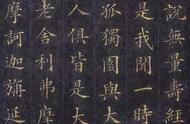 說無量壽經
是我聞一時
孤獨園與大
人俱皆是大
老舍利弗摩
摩訶迦旃延